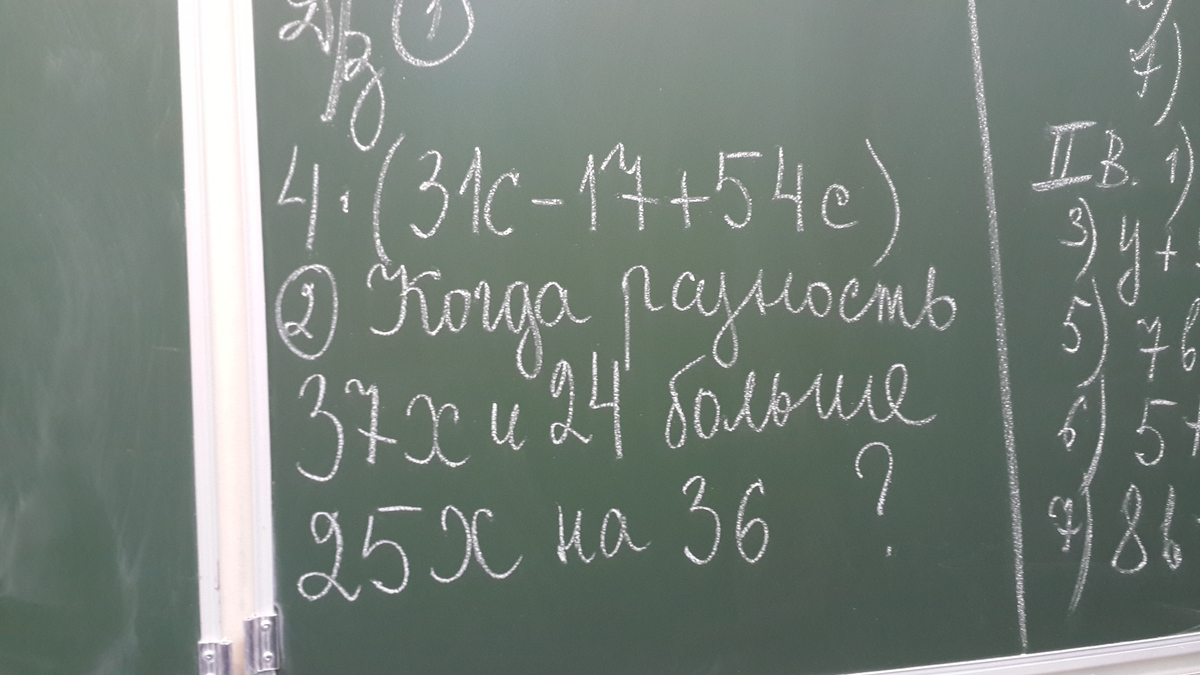 Д/З ①
4 · (31с - 17 + 54с)
② Когда разность
37х и 24 больше
25х на 36 ?
7)
II В. 1)
3) y +
5) 76
6) 5
7) 8